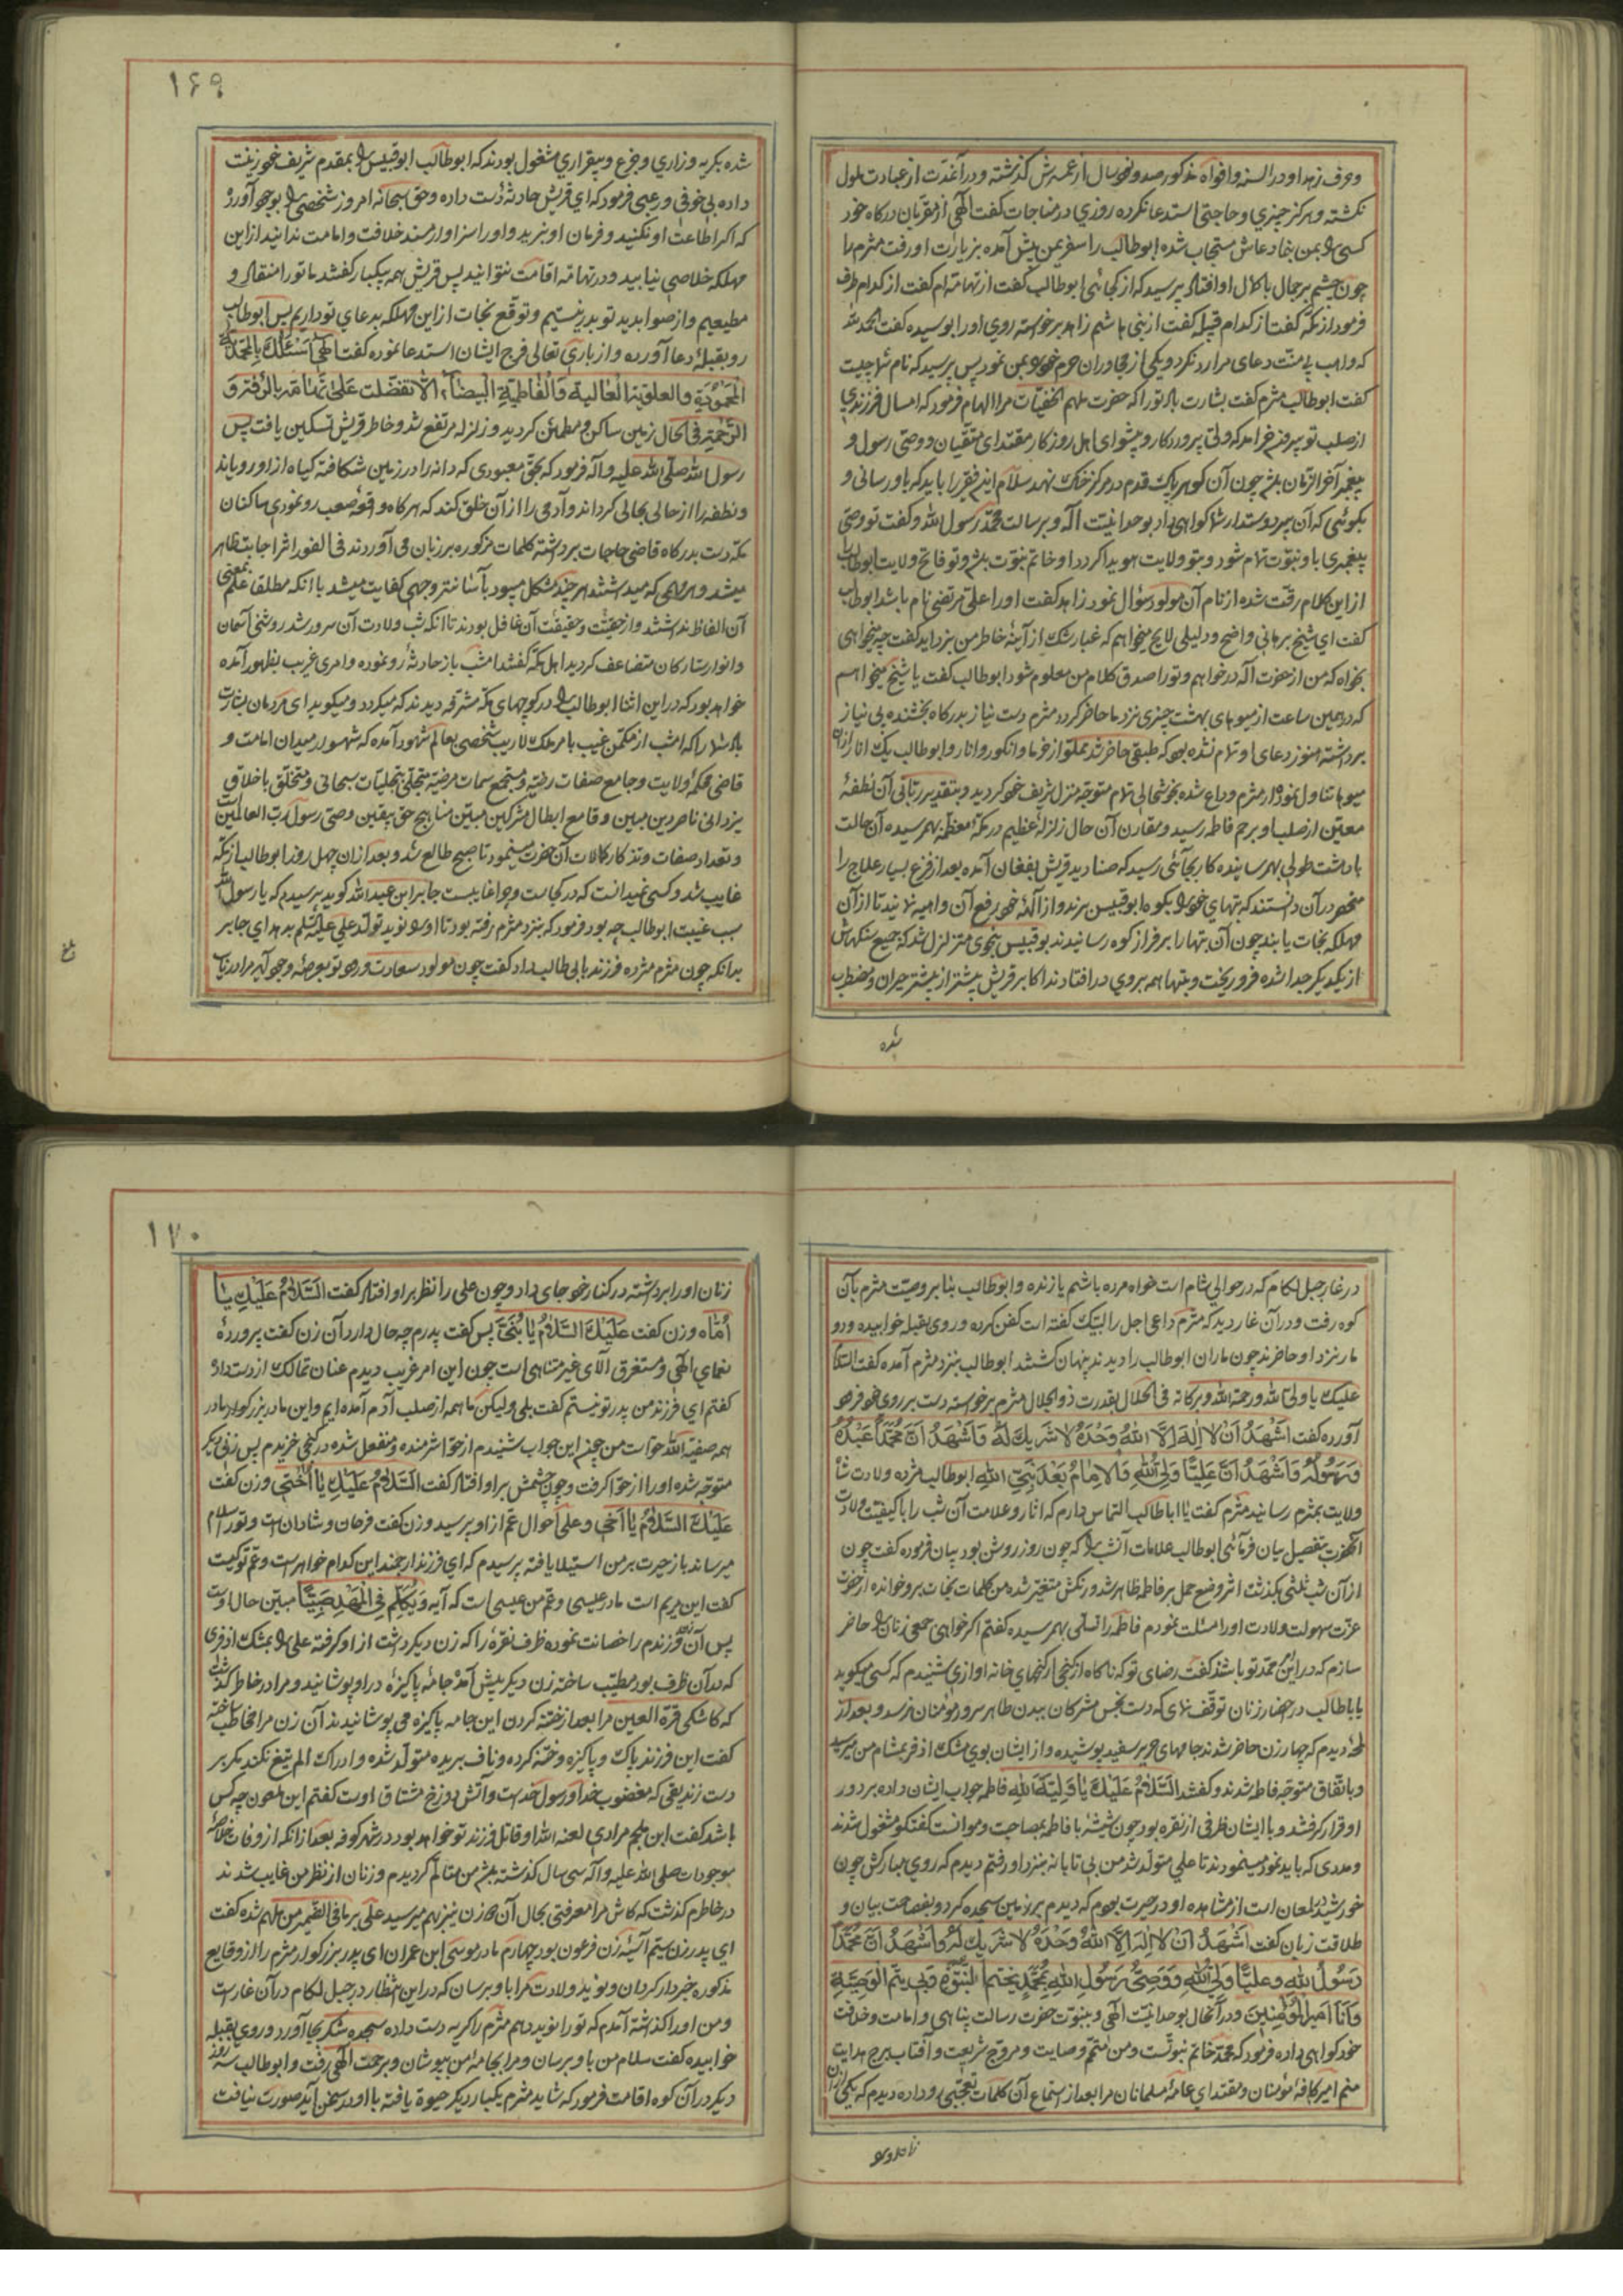 و عرف زهد او در السنه و افواه مذکور صد و نود سال از عمرش کذشته و در آغدت از عبادت ملول
نکشته و هرکز چیزی و حاجتی استدعا نکرده روزي در مناجات کفت الهی از مقربان درکاه خود
کسی را بمن بنما دعاش مستجاب شده ابوطالب را سفر یمن پیش آمده بزیارت او رفت مثرم را
چون چشم بر جمال با کمال او افتاد پرسید که از کجائی ابوطالب کفت از تهامه ام کفت از کدام طرف
فرمود از مکه کفت از کدام قبیله کفت از بنی هاشم زاهد برخواسته روي او را بوسیده کفت الحمد لله
که واهب بی منت دعای مرا رد نکرد و یکی از مجاوران حرم خود را بمن نمود پس پرسید که نام شما چیست
کفت ابوطالب مثرم کفت بشارت باد تو را که حضرت ملهم الخفیات مرا الهام فرمود که امسال فرزندي
از صلب تو بیرون خرامد که ولی پروردکار و پیشوای اهل روزکار مقتدای متقیان و وصی رسول و
پیغمبر آخر الزمان باشد چون آن کوهر پاک قدم در مرکز خاک نهد سلام این فقیر را باید که باو رسانی و
بکوئی که آن پیر دوستدار شما کواهی داد بوحدانیت اله و برسالت محمد رسول الله و کفت تو وصی
پیغمبری باو نبوت تمام شود و بتو ولایت هویدا کردد او خاتم نبوت باشد و تو فاتح ولایت ابوطالب
از این کلام رقت شده از نام آن مولود سؤال نمود زاهد کفت او را علی مرتضی نام باشد ابوطالب
کفت اي شیخ برهانی واضح و دلیلی لایح میخواهم که غبار شک از آینهٔ خاطر من بزداید کفت چه میخواهی
بخواه که من از حضرت اله درخواهم و تو را صدق کلام من معلوم شود ابوطالب کفت یا شیخ میخواهم
که در همین ساعت از میوهای بهشت چیزی نزد ما حاضر کردد مثرم دست نیاز بدرکاه بخشنده بی نیاز
برداشته هنوز دعای او تمام نشده بود که طبقی حاضر شد مملو از خرما و انکور و انار و ابوطالب یک انار از آن
میوها تناول نموده از مثرم وداع شده بخوشحالی تمام متوجه منزل شریف خود کردید و بتقدیر ربانی آن نطفهٔ
معین از صلب او برحم فاطمه رسید و مقارن آن حال زلزلهٔ عظیم در مکهٔ معظمه بهم رسیده آن حالت
بامدت طولی بهم رسانیده کار بجائی رسید که صنادید قریش بفغان آمده بعد از فزع بسیار علاج را
منحصر در آن دانستند که بتهاي خود را بکوه ابوقبیس برند و از آلههٔ خود رفع آن واهمه نمایند تا از آن
مهلکه نجات یابند چون آن بتها را بر فراز کوه رسانیدند بوقبیس بنحوی متزلزل شد که جمیع سنکهاش
از یکدیکر جدا شده فرو ریخت و بتها همه بروي در افتادند اکابر قریش بیشتر از پیشتر حیران و مضطرب
شده
۱۶۹
شده بکریه و زاري و جزع و بیقراري مشغول بودند که ابوطالب ابوقبیس را بمقدم شریف خود زینت
داده بی خوفی و رعبی فرمود که اي قریش حادثه دست داده و حق سبحانه امروز شخصی را بوجود آورد
که اکر اطاعت او نکنید و فرمان او نبرید و او را سزاوار مسند خلافت و امامت ندانید از این
مهلکه خلاصی نیابید و در تهامه اقامت نتوانید پس قریش همه بیکبار کفتند ما تو را منقاد و
مطیعیم و از صوابدید تو بدر نیستیم و توقع نجات از این مهلکه بدعاي تو داریم پس ابوطالب
رو بقبلهٔ دعا آورده و از باری تعالی فرج ایشان استدعا نموده کفت الهی اسئلک بالمحمدیة
المحمودیة والعلویة العالیة والفاطمیة البیضاء الا تفضلت علی تهامة بالرافة و
الرحمة فی الحال زمین ساکن و مطمئن کردید و زلزله مرتفع شد و خاطر قریش تسکین یافت پس
رسول الله صلی الله علیه و آله فرمود که بحق معبودی که دانه را در زمین شکافته کیاه از او رویاند
و نطفه را از حالی بحالی کرداند و آدمی را از آن خلق کند که هر کاه واقعهٔ صعب رو نمودي ساکنان
مکه دست بدرکاه قاضی حاجات برداشته کلمات مذکوره بر زبان می آوردند فی الفور اثر اجابت ظاهر
میشد و هر مهمی که میداشتند هر چند مشکل میبود بآسانترین وجهی کفایت میشد با انکه مطلقا علم بمعنی
آن الفاظ نداشتند و از حقیت و حقیقت آن غافل بودند تا انکه شب ولادت آن سرور شد روشنی آسمان
و انوار ستارکان متضاعف کردید اهل مکه کفتند امشب باز حادثهٔ رو نموده و امری غریب بظهور آمده
خواهد بود که در این اثنا ابوطالب را در کوچهای مکه مشرفه دیدند که میکردد و میکوید ای مردمان بشارت
باد شما را که امشب از مکمن غیب بامر ملک لاریب شخصی بعالم شهود آمده که شهسوار میدان امامت و
قاضی محکمهٔ ولایت و جامع صفات رضیه و مستجمع سمات مرضیه متجلی بتجلیات سبحانی و متخلق باخلاق
یزدانی ناصر دین مبین و قامع ابطال مشرکین مبین مناهج حق یقین وصی رسول رب العالمین
و تعداد صفات و تذکار کمالات آن حضرت مینمود تا صبح طالع شد و بعد از ان چهل روز ابوطالب از مکه
غایب شد و کسی نمیدانست که در کجاست و چرا غایبست جابر ابن عبد الله کوید پرسیدم که یا رسول الله
سبب غیبت ابوطالب چه بود فرمود که بنزد مثرم رفته بود تا او را نوید تولد علی علیه السلم بدهد اي جابر
بدانکه چون مثرم مژده فرزند بابی طالب داد کفت چون مولود سعادت ورود تو بعرصهٔ وجود آید مرا دریاب
در غار جبل لکام که در حوالی شام است خواه مرده باشم یا زنده و ابوطالب بنا بر وصیت مثرم بآن
کوه رفت و در آن غار دید که مثرم داعی اجل را لبیک کفته است کفن کرده و روی بقبله خوابیده و دو
مار نزد او حاضرند چون ماران ابوطالب را دیدند پنهان کشتند ابوطالب بنزد مثرم آمده کفت السلام
علیک یا ولی الله و رحمة الله و برکاته فی الحال بقدرت ذو الجلال مثرم برخواسته دست بر روی خود فرود
آورده کفت اشهد ان لا اله الا الله وحده لا شریک له و اشهد ان محمدا عبده
و رسوله و اشهد ان علیا ولی الله والامام بعد نبی الله ابوطالب مژده ولادت شاه
ولایت بمثرم رسانید مثرم کفت یا اباطالب التماس دارم که اثار و علامت آن شب را با کیفیت ولادت
انحضرت بتفصیل بیان فرمائی ابوطالب علامات آنشب را که چون روز روشن بود بیان فرموده کفت چون
از آن شب ثلثی بکذشت اثر وضع حمل بر فاطمه ظاهر شد و رنکش متغیر شده من کلمات نجات برو خوانده از حضرت
عزت سهولت ولادت او را مسئلت نمودم فاطمه را تسلی بهم رسیده کفتم اکر خواهی جمعی زنان را حاضر
سازم که در این ممد تو باشند کفت رضای تو که ناکاه از کنجی از کنجهای خانه اوازي شنیدم که کسی میکوید
یا اباطالب در احضار زنان توقف نمای که دست نجس مشرکان ببدن طاهر سرور مؤمنان نرسد و بعد از
لحظهٔ دیدم که چهار زن حاضر شدند جامهای حریر سفید پوشیده و از ایشان بوی مشک اذفر بمشام من میرسید
و باتفاق متوجه فاطمه شدند و کفتند السلام علیک یا ولیة الله فاطمه جواب ایشان داده بر دور
او قرار کرفتند و با ایشان ظرفی از نقره بود چون شیشه با فاطمه بمصاحبت و موانست کفتکو مشغول شدند
و مددی که باید نمود مینمودند تا علی متولد شد من بی تابانه بنزد او رفتم دیدم که روي مبارکش چون
خورشید در لمعان است از مشاهده او در حیرت بودم که دیدم بر زمین سجده کرد و بفصاحت بیان و
طلاقت زبان کفت اشهد ان لا اله الا الله وحده لا شریک له و اشهد ان محمدا
رسول الله و علیا ولی الله و وصی رسول الله بمحمد یختم النبوة و بی یتم الوصیة
و انا امیر المؤمنین و در آنحال بوحدانیت الهی و بنبوت حضرت رسالت پناهی و امامت و خلافت
خود کواهی داده فرمود که محمد خاتم نبوتست و من متمم وصایت و مروج شریعت و افتاب برج هدایت
منم امیر کافهٔ مؤمنان و مقتدای عامهٔ مسلمانان مرا بعد از استماع آن کلمات تعجبی رو داده دیدم که یکی از آن
زنان او را
۱۷۰
زنان او را برداشته در کنار خود جای داد و چون علی را نظر بر او افتاد کفت السلام علیک یا
اماه و زن کفت علیک السلام یا بنی پس کفت پدرم چه حال دارد آن زن کفت پروردهٔ
نعمای الهی و مستغرق آلای غیر متناهی است چون این امر غریب دیدم عنان تمالک از دست داد
کفتم ای فرزند من پدر تو نیستم کفت بلی ولیکن ما همه از صلب آدم آمده ایم و این مادر بزرکوار مادر
همه صفیة الله حوا است من چون این جواب شنیدم از حوا شرمنده و منفعل شده در کنجی خزیدم پس زنی دیکر
متوجه شده او را از حوا کرفت و چون چشمش بر او افتاد کفت السلام علیک یا اختی و زن کفت
علیک السلام یا اخی و علی احوال عم از او پرسید و زن کفت فرحان و شادان است و تو را سلام
میرساند باز حیرت بر من استیلا یافته پرسیدم که ای فرزند ارجمند این کدام خواهر است و عم تو کیست
کفت این مریم است مادر عیسی و عم من عیسی است که آیه و یکلم فی المهد صبیا مبین حال اوست
پس آن زن فرزندم را حضانت نموده ظرف نقره را که زن دیکر داشت از او کرفته علی را بمشک اذفری
که در آن ظرف بود مطیب ساخته زن دیکر پیش آمد و جامهٔ پاکیزه در او پوشانید و مرا در خاطر کذشت
که کاشکی قرة العین مرا بعد از ختنه کردن این جامه پاکیزه می پوشانیدند آن زن مرا مخاطب ساخته
کفت این فرزند پاک و پاکیزه و ختنه کرده و ناف بریده متولد شده و ادراک الم تیغ نکند مکر بر
دست زندیقی که مغضوب خدا و رسول خداست و آتش دوزخ مشتاق اوست کفتم این ملعون چه کس
باشد کفت ابن ملجم مرادي لعنه الله او قاتل فرزند تو خواهد بود در شهر کوفه بعد از انکه از وفات خلاصهٔ
موجودات صلی الله علیه و آله سی سال کذشته باشد من متالم کردیدم و زنان از نظر من غایب شدند
در خاطرم کذشت که کاش مرا معرفتی بحال آن دو زن نیز بهم میرسید علی بر مافی الضمیر من ملهم شده کفت
ای پدر زن سیم آسیه زن فرعون بود چهارم مادر موسی ابن عمران ای پدر بزرکوار مثرم را از وقایع
مذکوره خبردار کردان و نوید ولادت مرا باو برسان که در این انتظار در جبل لکام در آن غار است
و من او را کذاشته آمدم که تو را نوید دهم مثرم را کریه دست داده سجده شکر بجا آورد و روی بقبله
خوابیده کفت سلام من باو برسان و مرا بجامهٔ من بپوشان و برحمت الهی رفت و ابوطالب سه روز
دیکر در آن کوه اقامت فرمود که شاید مثرم یکبار دیکر حیوة یافته با او در سخن آید صورت نیافت